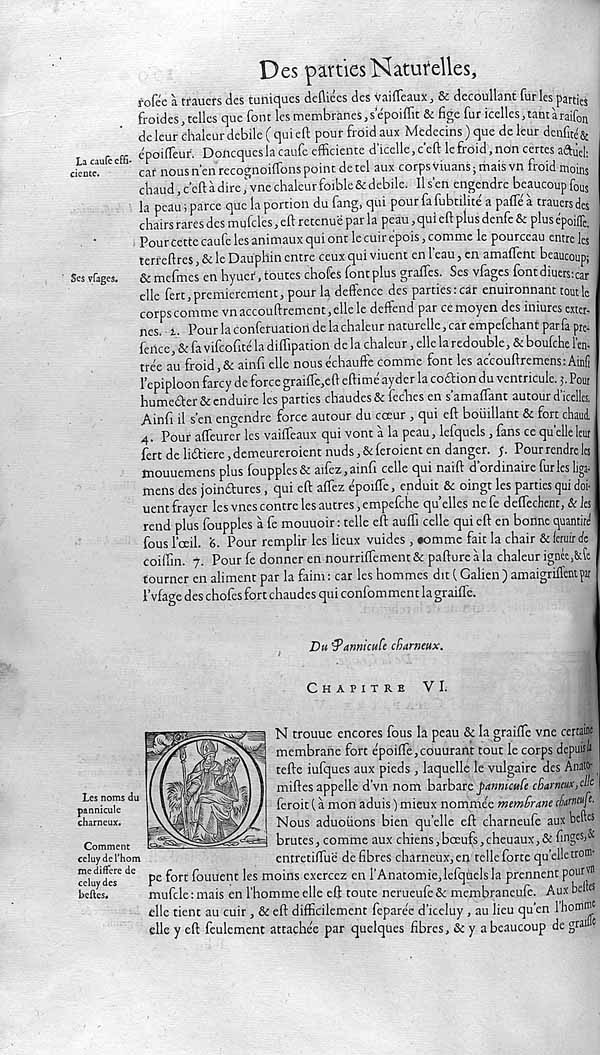 Des parties Naturelles,
rosée à trauers des tuniques desliées des vaisseaux, & decoullant sur les parties
froides, telles que sont les membranes, s'époissit & fige sur icelles, tant à raison
de leur chaleur debile (qui est pour froid aux Medecins) que de leur densité &
La cause effi-
ciente.
époisseur. Doncques la cause efficiente d'icelle, c'est le froid, non certes actuel:
car nous n'en recognoissons point de tel aux corps viuans; mais vn froid moins
chaud, c'est à dire, vne chaleur foible & debile. Il s'en engendre beaucoup sous
la peau; parce que la portion du sang, qui pour sa subtilité a passé à trauers des
chairs rares des muscles, est retenuë par la peau, qui est plus dense & plus époisse.
Pour cette cause les animaux qui ont le cuir épois, comme le pourceau entre les
terrestres, & le Dauphin entre ceux qui viuent en l'eau, en amassent beaucoup;
Ses vsages.
& mesmes en hyuer, toutes choses sont plus grasses. Ses vsages sont diuers: car
elle sert, premierement, pour la deffence des parties: car enuironnant tout le
corps comme vn accoustrement, elle le deffend par ce moyen des iniures exter-
nes. 2. Pour la conseruation de la chaleur naturelle, car empeschant par sa pre-
sence, & sa viscosité la dissipation de la chaleur, elle la redouble, & bousche l'en-
trée au froid, & ainsi elle nous échauffe comme font les accoustremens: Ainsi
l'epiploon farcy de force graisse, est estimé ayder la coction du ventricule. 3. Pour
humecter & enduire les parties chaudes & seches en s'amassant autour d'icelles.
Ainsi il s'en engendre force autour du cœur, qui est boüillant & fort chaud.
4. Pour asseurer les vaisseaux qui vont à la peau, lesquels, sans ce qu'elle leur
sert de lictiere, demeureroient nuds, & seroient en danger. 5. Pour rendre les
mouuemens plus soupples & aisez, ainsi celle qui naist d'ordinaire sur les liga-
mens des joinctures, qui est assez époisse, enduit & oingt les parties qui doi-
uent frayer les vnes contre les autres, empesche qu'elles ne se dessechent, & les
rend plus soupples à se mouuoir: telle est aussi celle qui est en bonne quantité
sous l'œil. 6. Pour remplir les lieux vuides, comme fait la chair & seruir de
coissin. 7. Pour se donner en nourrissement & pasture à la chaleur ignée, & se
tourner en aliment par la faim: car les hommes dit (Galien) amaigrissent par
l'vsage des choses fort chaudes qui consomment la graisse.
Du Pannicule charneux.
CHAPITRE VI.
ON trouue encores sous la peau & la graisse vne certaine
membrane fort époisse, couurant tout le corps depuis la
teste iusques aux pieds, laquelle le vulgaire des Anato-
mistes appelle d'vn nom barbare pannicule charneux, elle
Les noms du
pannicule
charneux.
seroit (à mon aduis) mieux nommée membrane charneuse.
Nous aduoüons bien qu'elle est charneuse aux bestes
brutes, comme aux chiens, bœufs, cheuaux, & singes, &
Comment
celuy de l'hom
me differe de
celuy des
bestes.
entretissuë de fibres charneux, en telle sorte qu'elle trom-
pe fort souuent les moins exercez en l'Anatomie, lesquels la prennent pour vn
muscle: mais en l'homme elle est toute nerueuse & membraneuse. Aux bestes
elle tient au cuir, & est difficilement separée d'iceluy, au lieu qu'en l'homme
elle y est seulement attachée par quelques fibres, & y a beaucoup de graisse